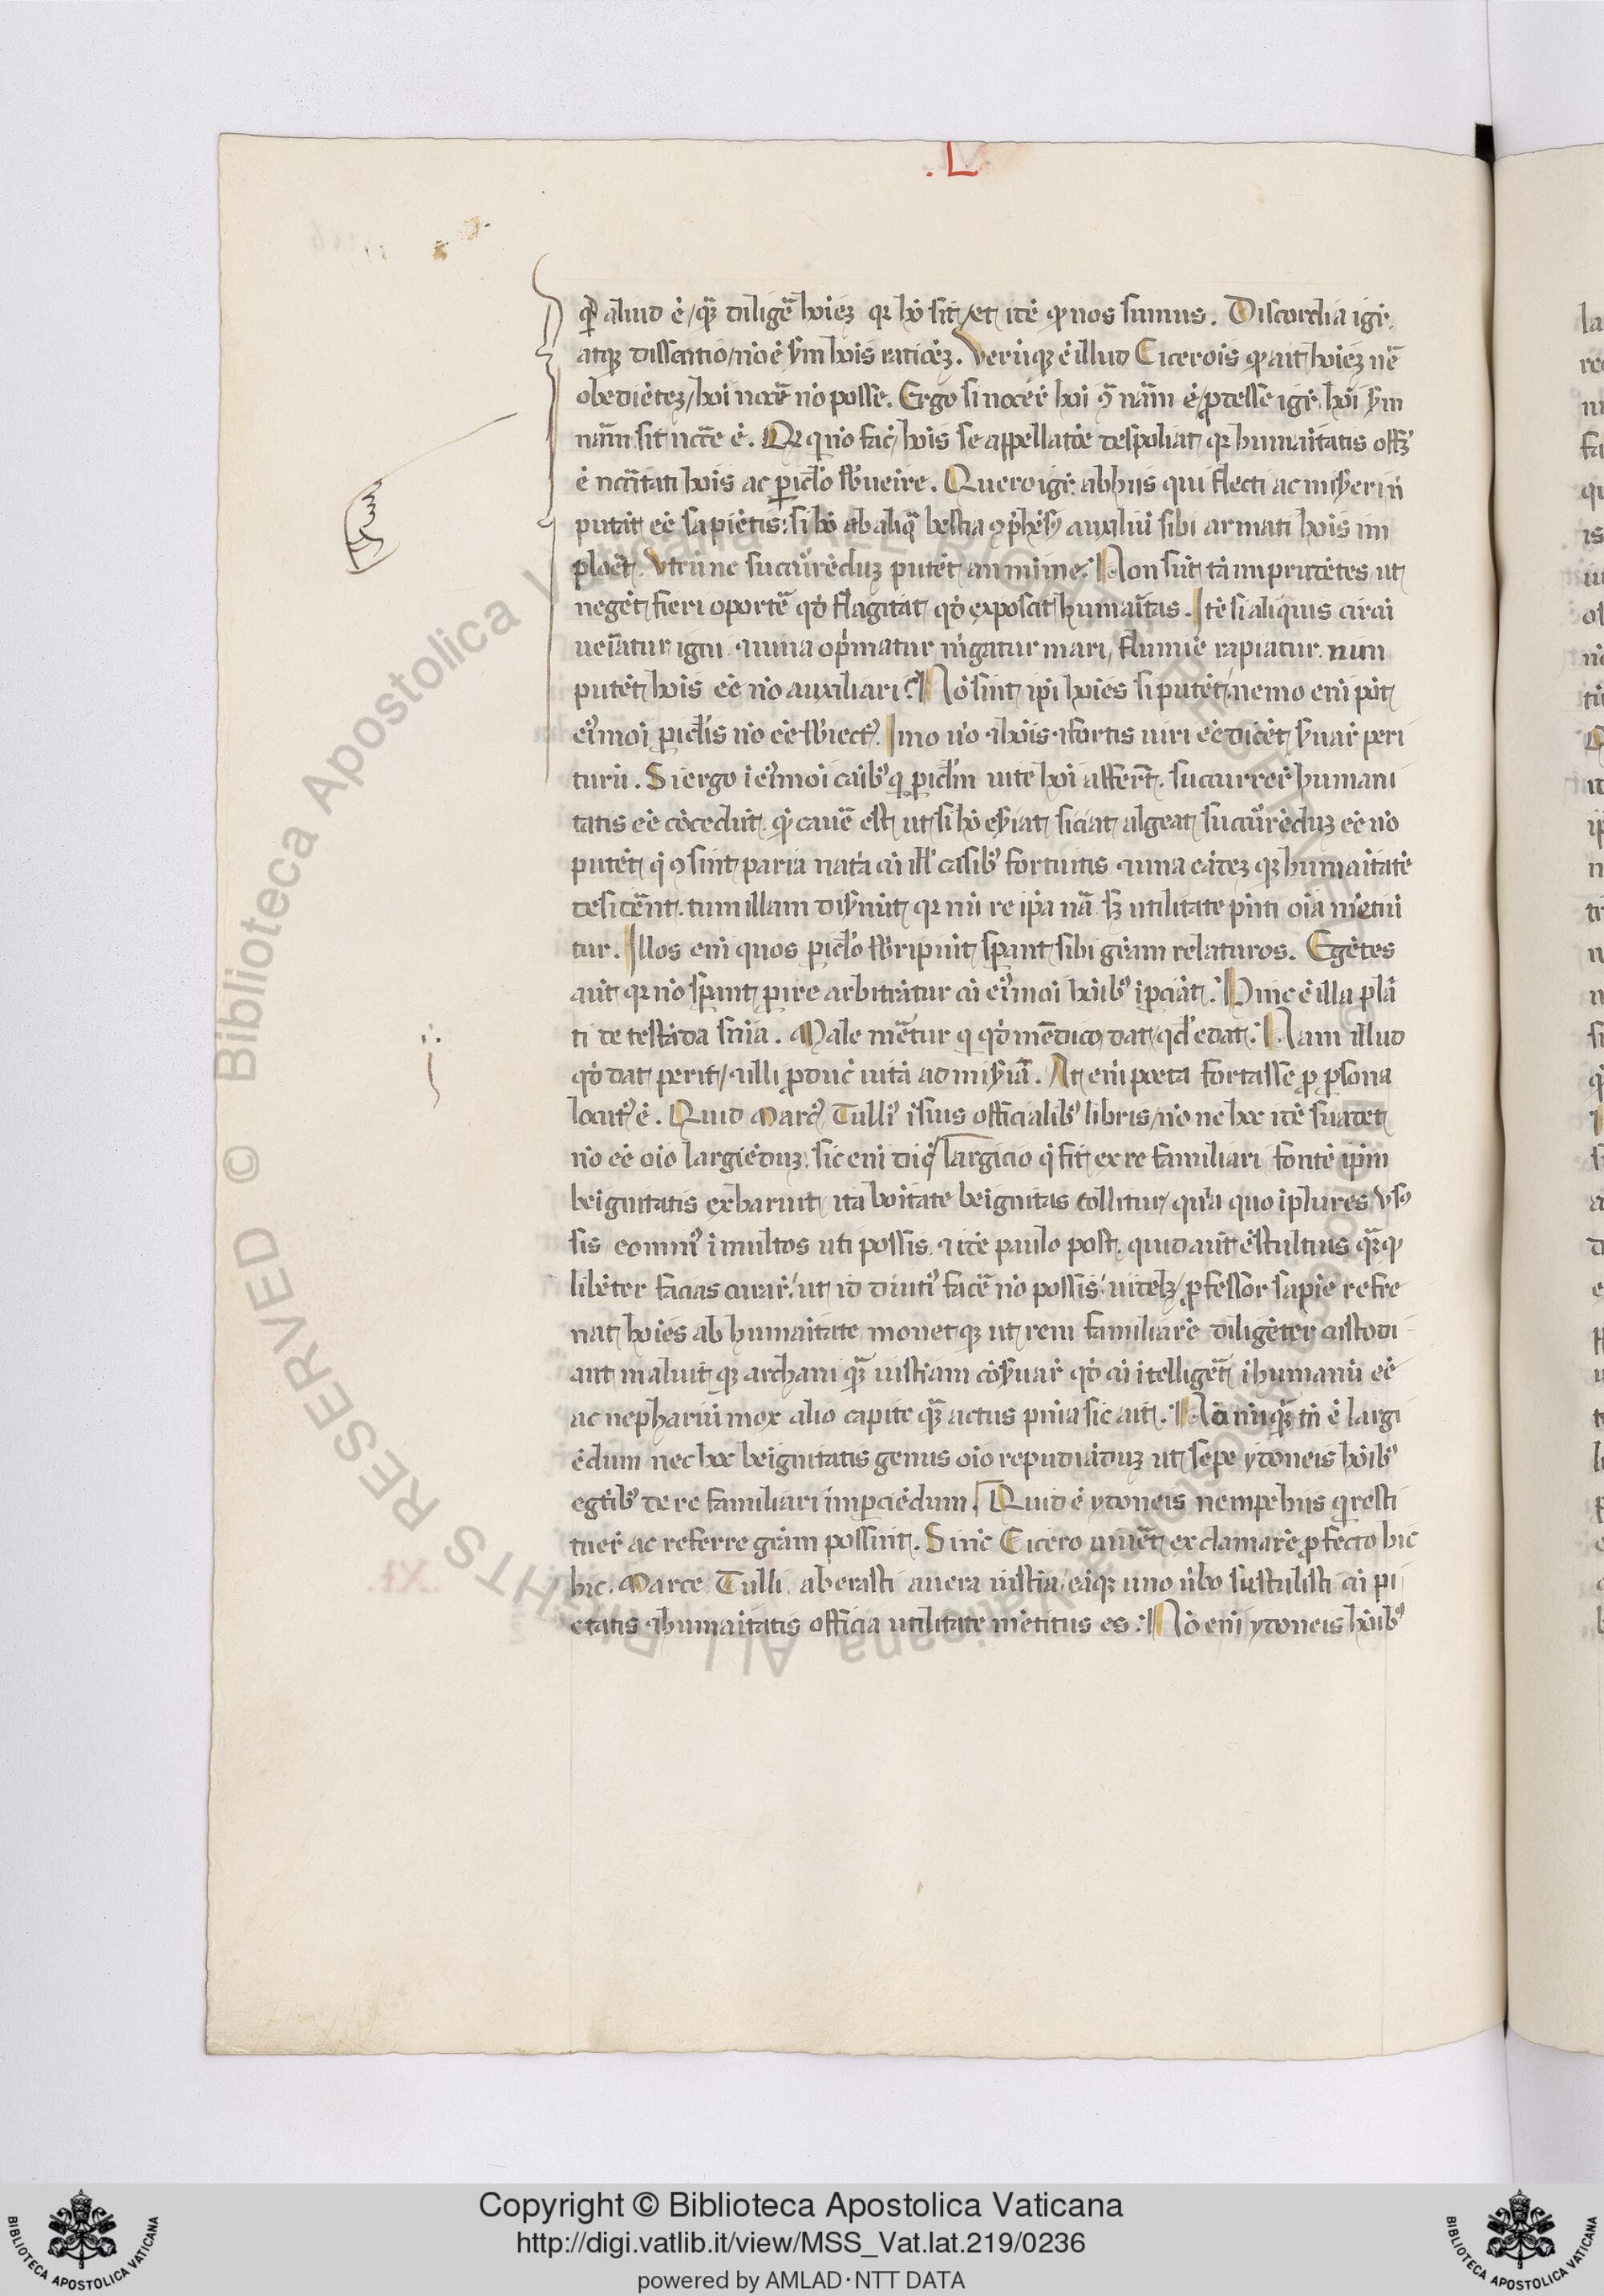 . L
qď aliud ē / q̄ȝ diligē hoīeȝ qꝛ hō sit / et idē qď nos sumus . Discordia igr̄
atqȝ dissentio / nō ē s̄m hoīs ratōeȝ . Verūqȝ ē illud Ciceroīs qď ait hoīeȝ nē
obediēteȝ / hoī nocē nō posse . Ergo si nocē ē hoī ꝯ̄ nām ē / ꝓdesse igr̄ hoī s̄m
nām sit nc̄ce ē . Qď qui nō fac̄ / hoīs se appellatōe despoliat qꝛ humaītatis offȝ
ē nc̄citati hoīs ac ꝑiclo s̄bueīre . Quero igr̄ ab hijs qui flecti ac mis̄eri nō
putāt eē sapiētis : si hō ab aliq̄ bestia ꝯp̄hēs̄ auxiliū sibi armati hoīs im
ploēt . Vtrū ne succur̄ēduȝ putēt an mīme . Non sūt tā imprudētes ut
negēt fieri oportē qď flagitat qď exposcit humaītas . Itē si aliquis circū
ueīatur igni ruina op̄matur m̄gatur mari / flumīe rapiatur . num
putēt hoīs eē nō auxiliari . Nō sunt ip̄i hoīes si putēt / nemo enī pōt
ei᷒moī ꝑiclis nō eē s̄biect᷒ . Imo ūo ⁊ hoīs ⁊ fortis uiri eē dicēt s̄uar̄ peri
turū . Si ergo ī ei᷒moī caūb᷒ q ꝑiclm uite hoī affert̄ . succurrer̄ humani
tatis eē cōcedūt . qď caūe est ut si hō es̄iat siciat algeat succur̄ēduȝ eē nō
putēt q̄ ꝯ sint paria nat̄a cū ill᷒ casib᷒ fortuitis ⁊ una eādeȝ qꝛ humaītatē
desidēnt . tum illam dis̄nūt qꝛ nō re ip̄a nā sȝ utilitate p̄nti oīa mētiū
tur . Illos enī quos ꝑiclo s̄bripūit sp̄ant sibi grām relaturos . Egētes
aūt qꝛ nō sp̄ant ꝑire arbitrātur cū ei᷒moī hoīib᷒ īꝑciāt . Hinc ē illa plā
ti detestāda sn̄ia . Male mētur q qď mēdico dat / qď edat . Nam illud
qď dat perit / ⁊ illi ꝓduc̄ uitā ad mis̄iā . At enī poeta fortasse ꝓ ꝑsona
locut᷒ ē . Quid Marc᷒ Tulli᷒ ī suis officialib᷒ libris / nō ne hoc idē suadet
nō eē oīo largiēduȝ . sic enī dic̄ / largicio q̄ fit ex re familiari fontē ip̄m
beignitatis exhaurit ita boītate beignitas tollitur / qua quo ī plures
sis eo min᷒ ī multos uti possis . ⁊ idē paulo post . quid aūt ē stultius q̄ȝ qď
libēter facias curar̄ / ut id diuti᷒ facē nō possis . uidelȝ / ꝓfessor sapiē refre
nat hoīes ab humaītate monetqȝ ut rem familiarē diligēter custodi
ant maluitqȝ archam q̄ȝ iustiām cōs̄uar̄ qď cū ītelligēt īhumanū eē
ac nephariū mox alio capite q̄ȝ actus p̄nia sic ait . Nō nūq̄ȝ tn̄ ē largi
ēdum nec hoc beignitatis genus oīo repudiāduȝ ut sepe ydoneis hoīib᷒
egētib᷒ de re familiari imꝑciēdum . Quid ē ydoneis nempe hiis q resti
tuer̄ ac referre grām possint . Si nūc Cicero uiuēt exclamarē ꝓfecto hic
hic . Marce Tulli . aberasti a uera iustia / eāqȝ uno ūbo sustulisti cū pi
etatis ⁊ humaītatis officia utilitate mētitus es . Nō enī ydoneis hoīib᷒
Copyright © Biblioteca Apostolica Vaticana
http://digi.vatlib.it/view/MSS_Vat.lat.219/0236
powered by AMLAD·NTT DATA